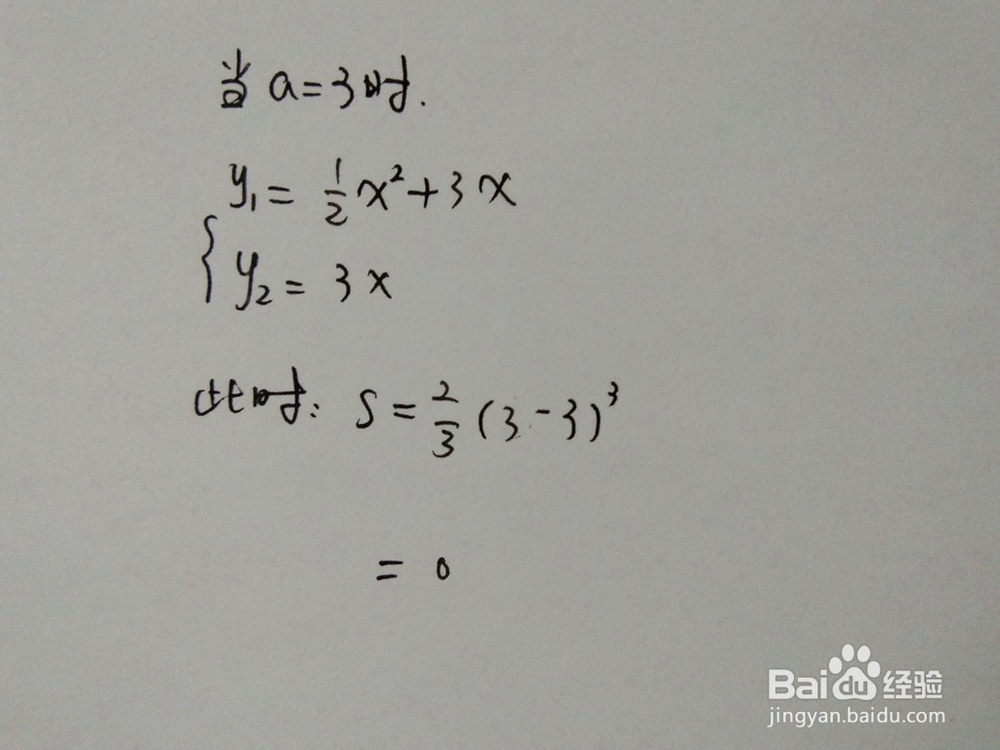 当 a=3时.
y₁= 1/2 x²+3x
{ y₂= 3x
此时: S= 2/3 (3-3)³
= 0
Baidu 经验
jingyan.baidu.com